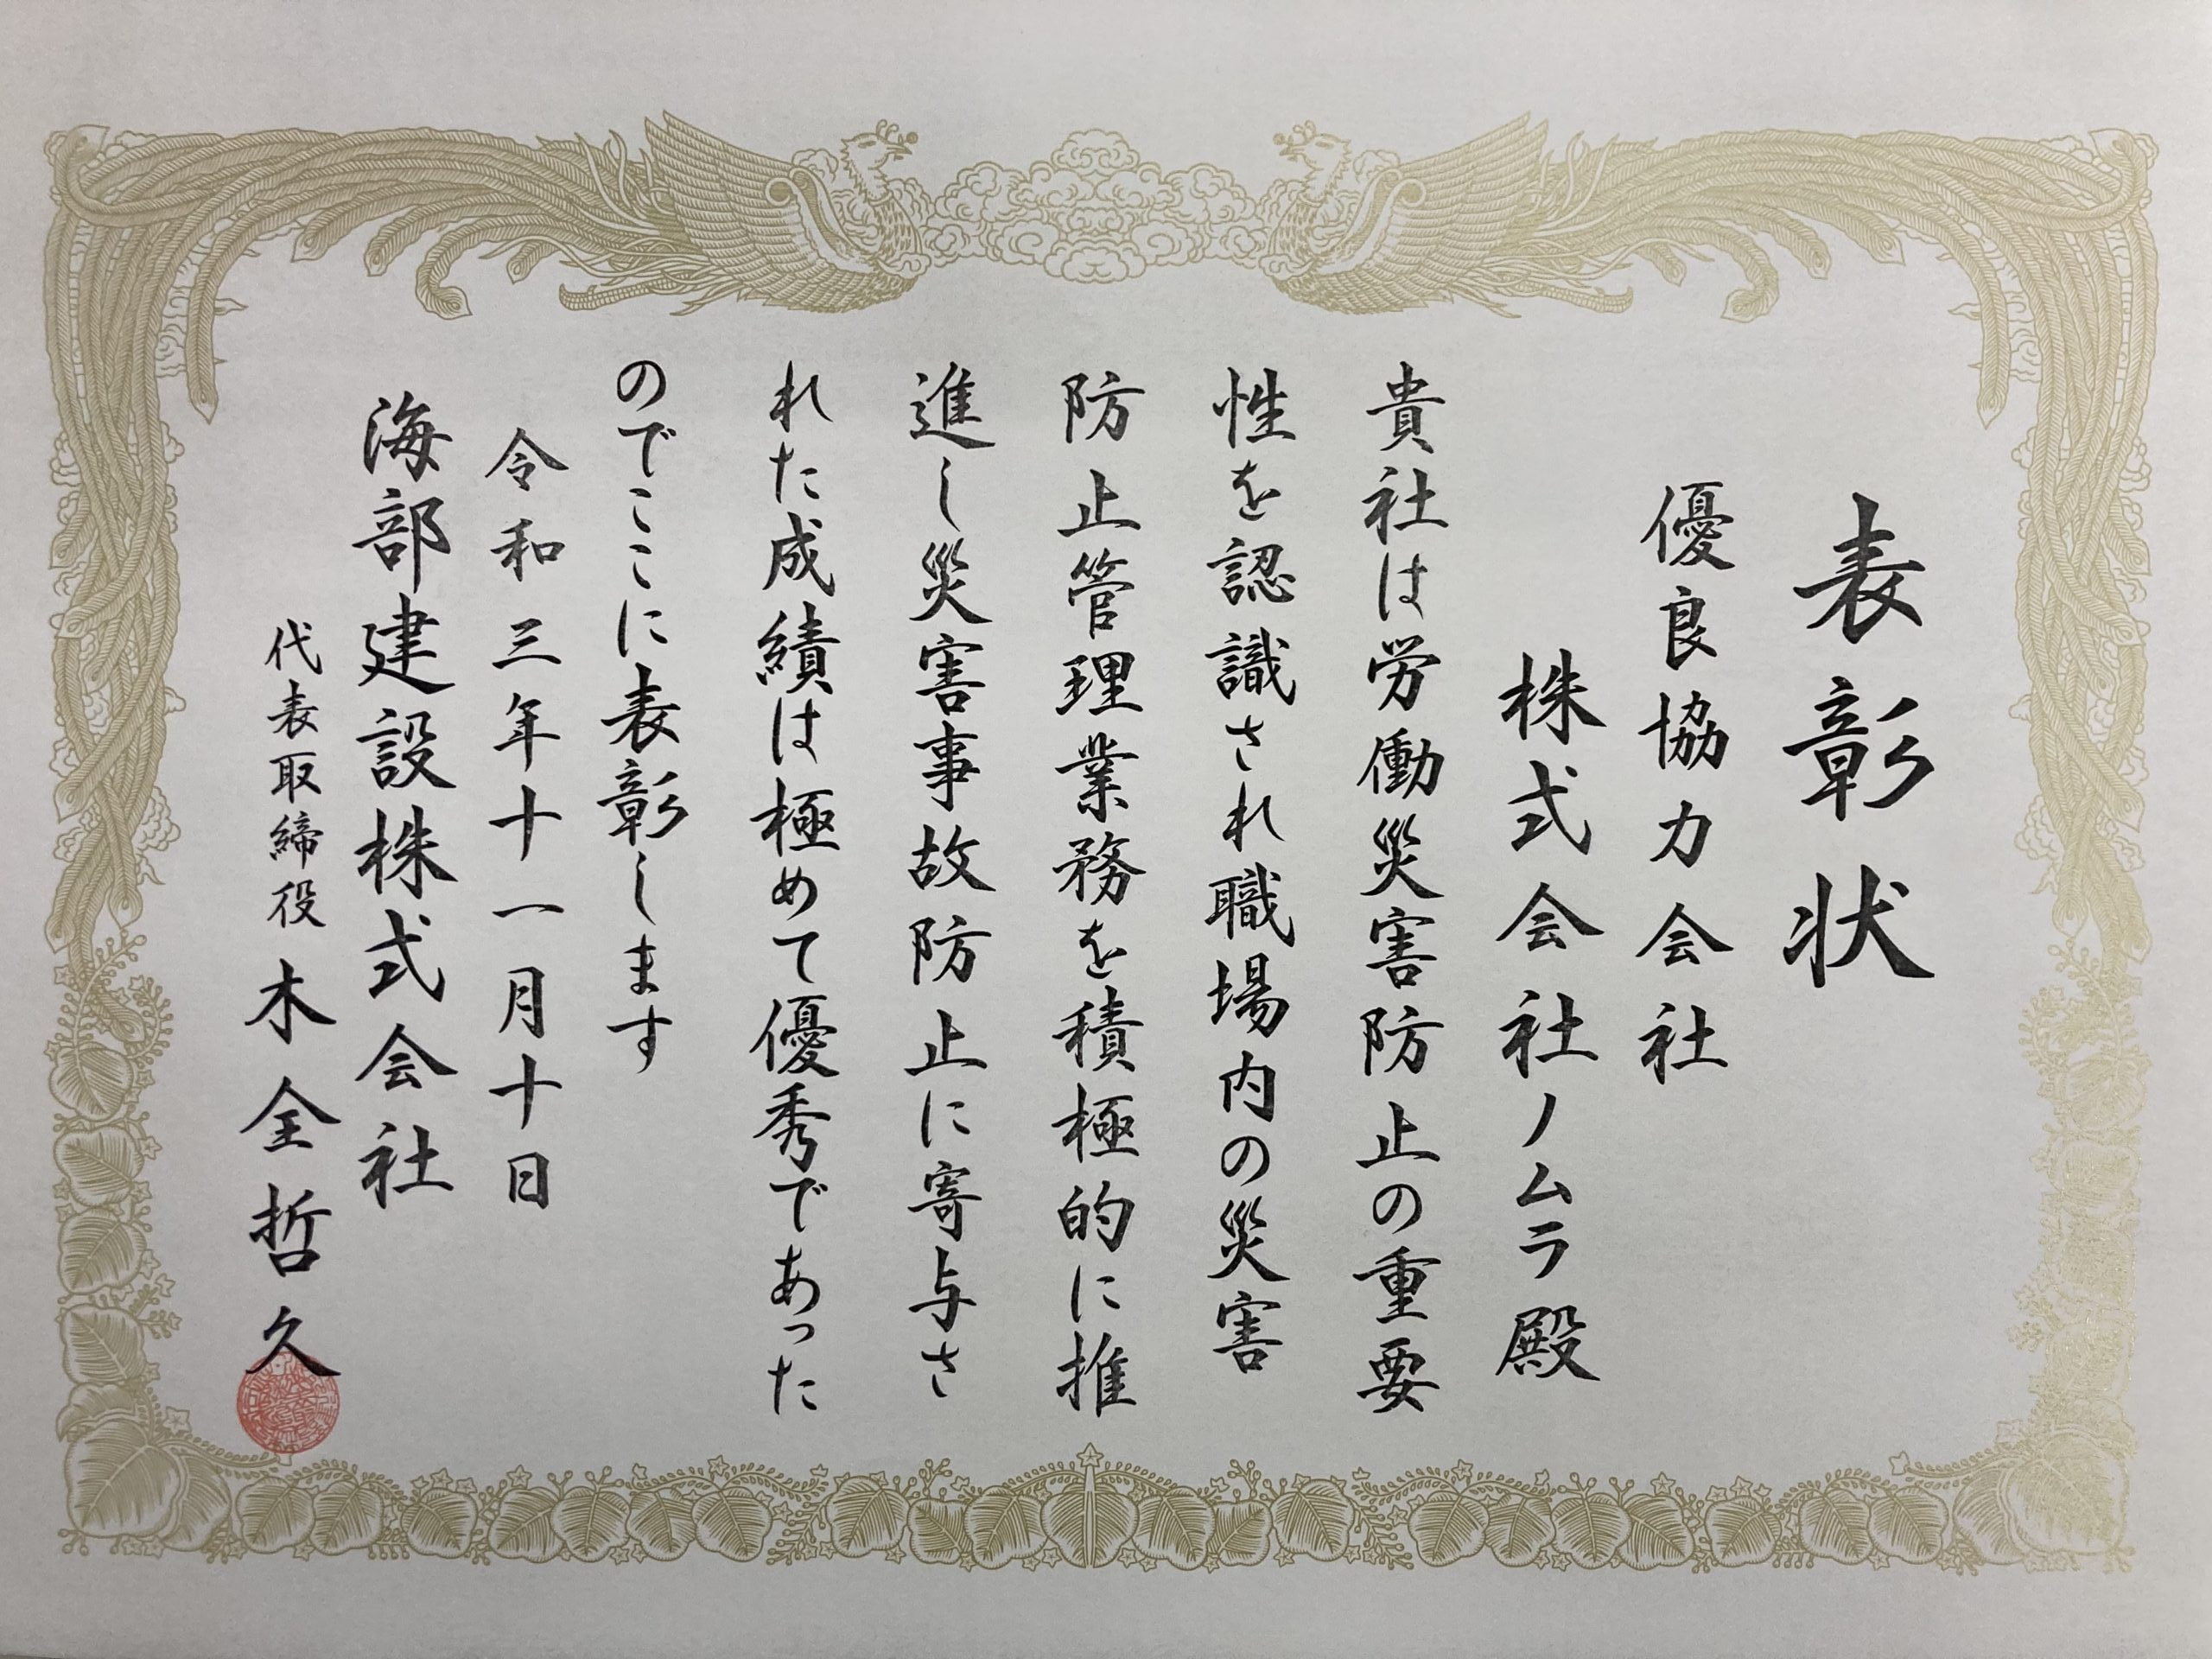 表彰状
優良協力会社
株式会社ノムラ殿
貴社は労働災害防止の重要
性を認識され職場内の災害
防止管理業務を積極的に推
進し災害事故防止に寄与さ
れた成績は極めて優秀であった
のでここに表彰します
令和三年十一月十日
海部建設株式会社
代表取締役 木全哲久